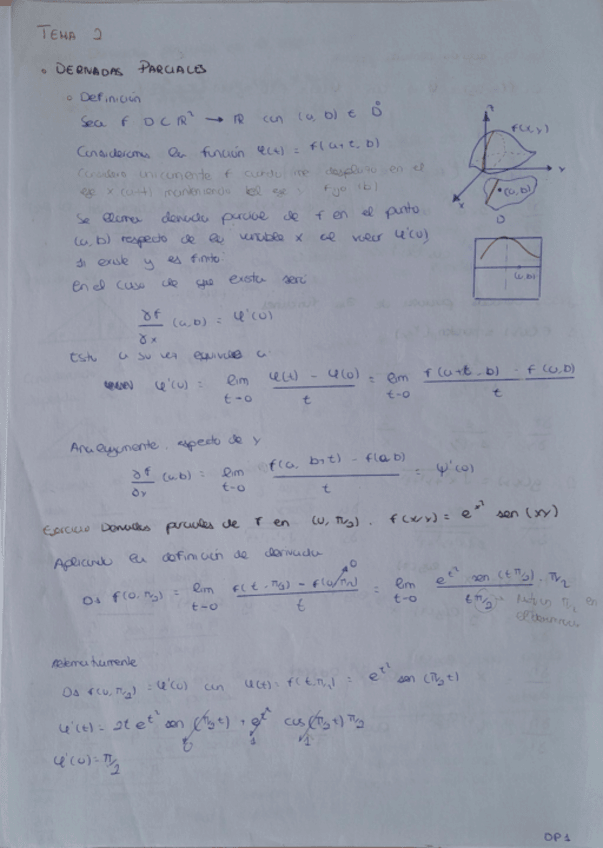 TEMA 2
• DERIVADAS PARCIALES
• Definición
Sea f D ⊂ ℝ² → ℝ con (a, b) ∈ D̊
Consideramos la función φ(t) = f(a+t, b)
Considero únicamente f cuando me desplazo en el
eje x (a+t) manteniendo el eje y fijo (b)
Se llama derivada parcial de f en el punto
(a, b) respecto de la variable x al valor φ'(0)
si existe y es finito.
En el caso de que exista será:
∂f/∂x (a,b) = φ'(0)
Esto a su vez equivale a:
φ'(0) = lim t→0 (φ(t) - φ(0))/t = lim t→0 (f(a+t, b) - f(a,b))/t
Analogamente respecto de y
∂f/∂y (a,b) = lim t→0 (f(a, b+t) - f(a,b))/t = ψ'(0)
Ejercicio Derivadas parciales de f en (0, π/2). f(x,y) = e^x² sen (xy)
Aplicando la definición de derivada
D₁ f(0, π/2) = lim t→0 (f(t, π/2) - f(0, π/2))/t = lim t→0 (e^t² sen (t π/2) · π/2)/(t π/2)
0
Alternativamente
D₁ f(0, π/2) = φ'(0) con φ(t) = f(t, π/2) = e^t² sen (π/2 t)
φ'(t) = 2t e^t² sen (π/2 t) + e^t² cos (π/2 t) π/2
0 1 1
φ'(0) = π/2
z
f(x,y)
y
x
(a,b)
D
(a,b)
DP1